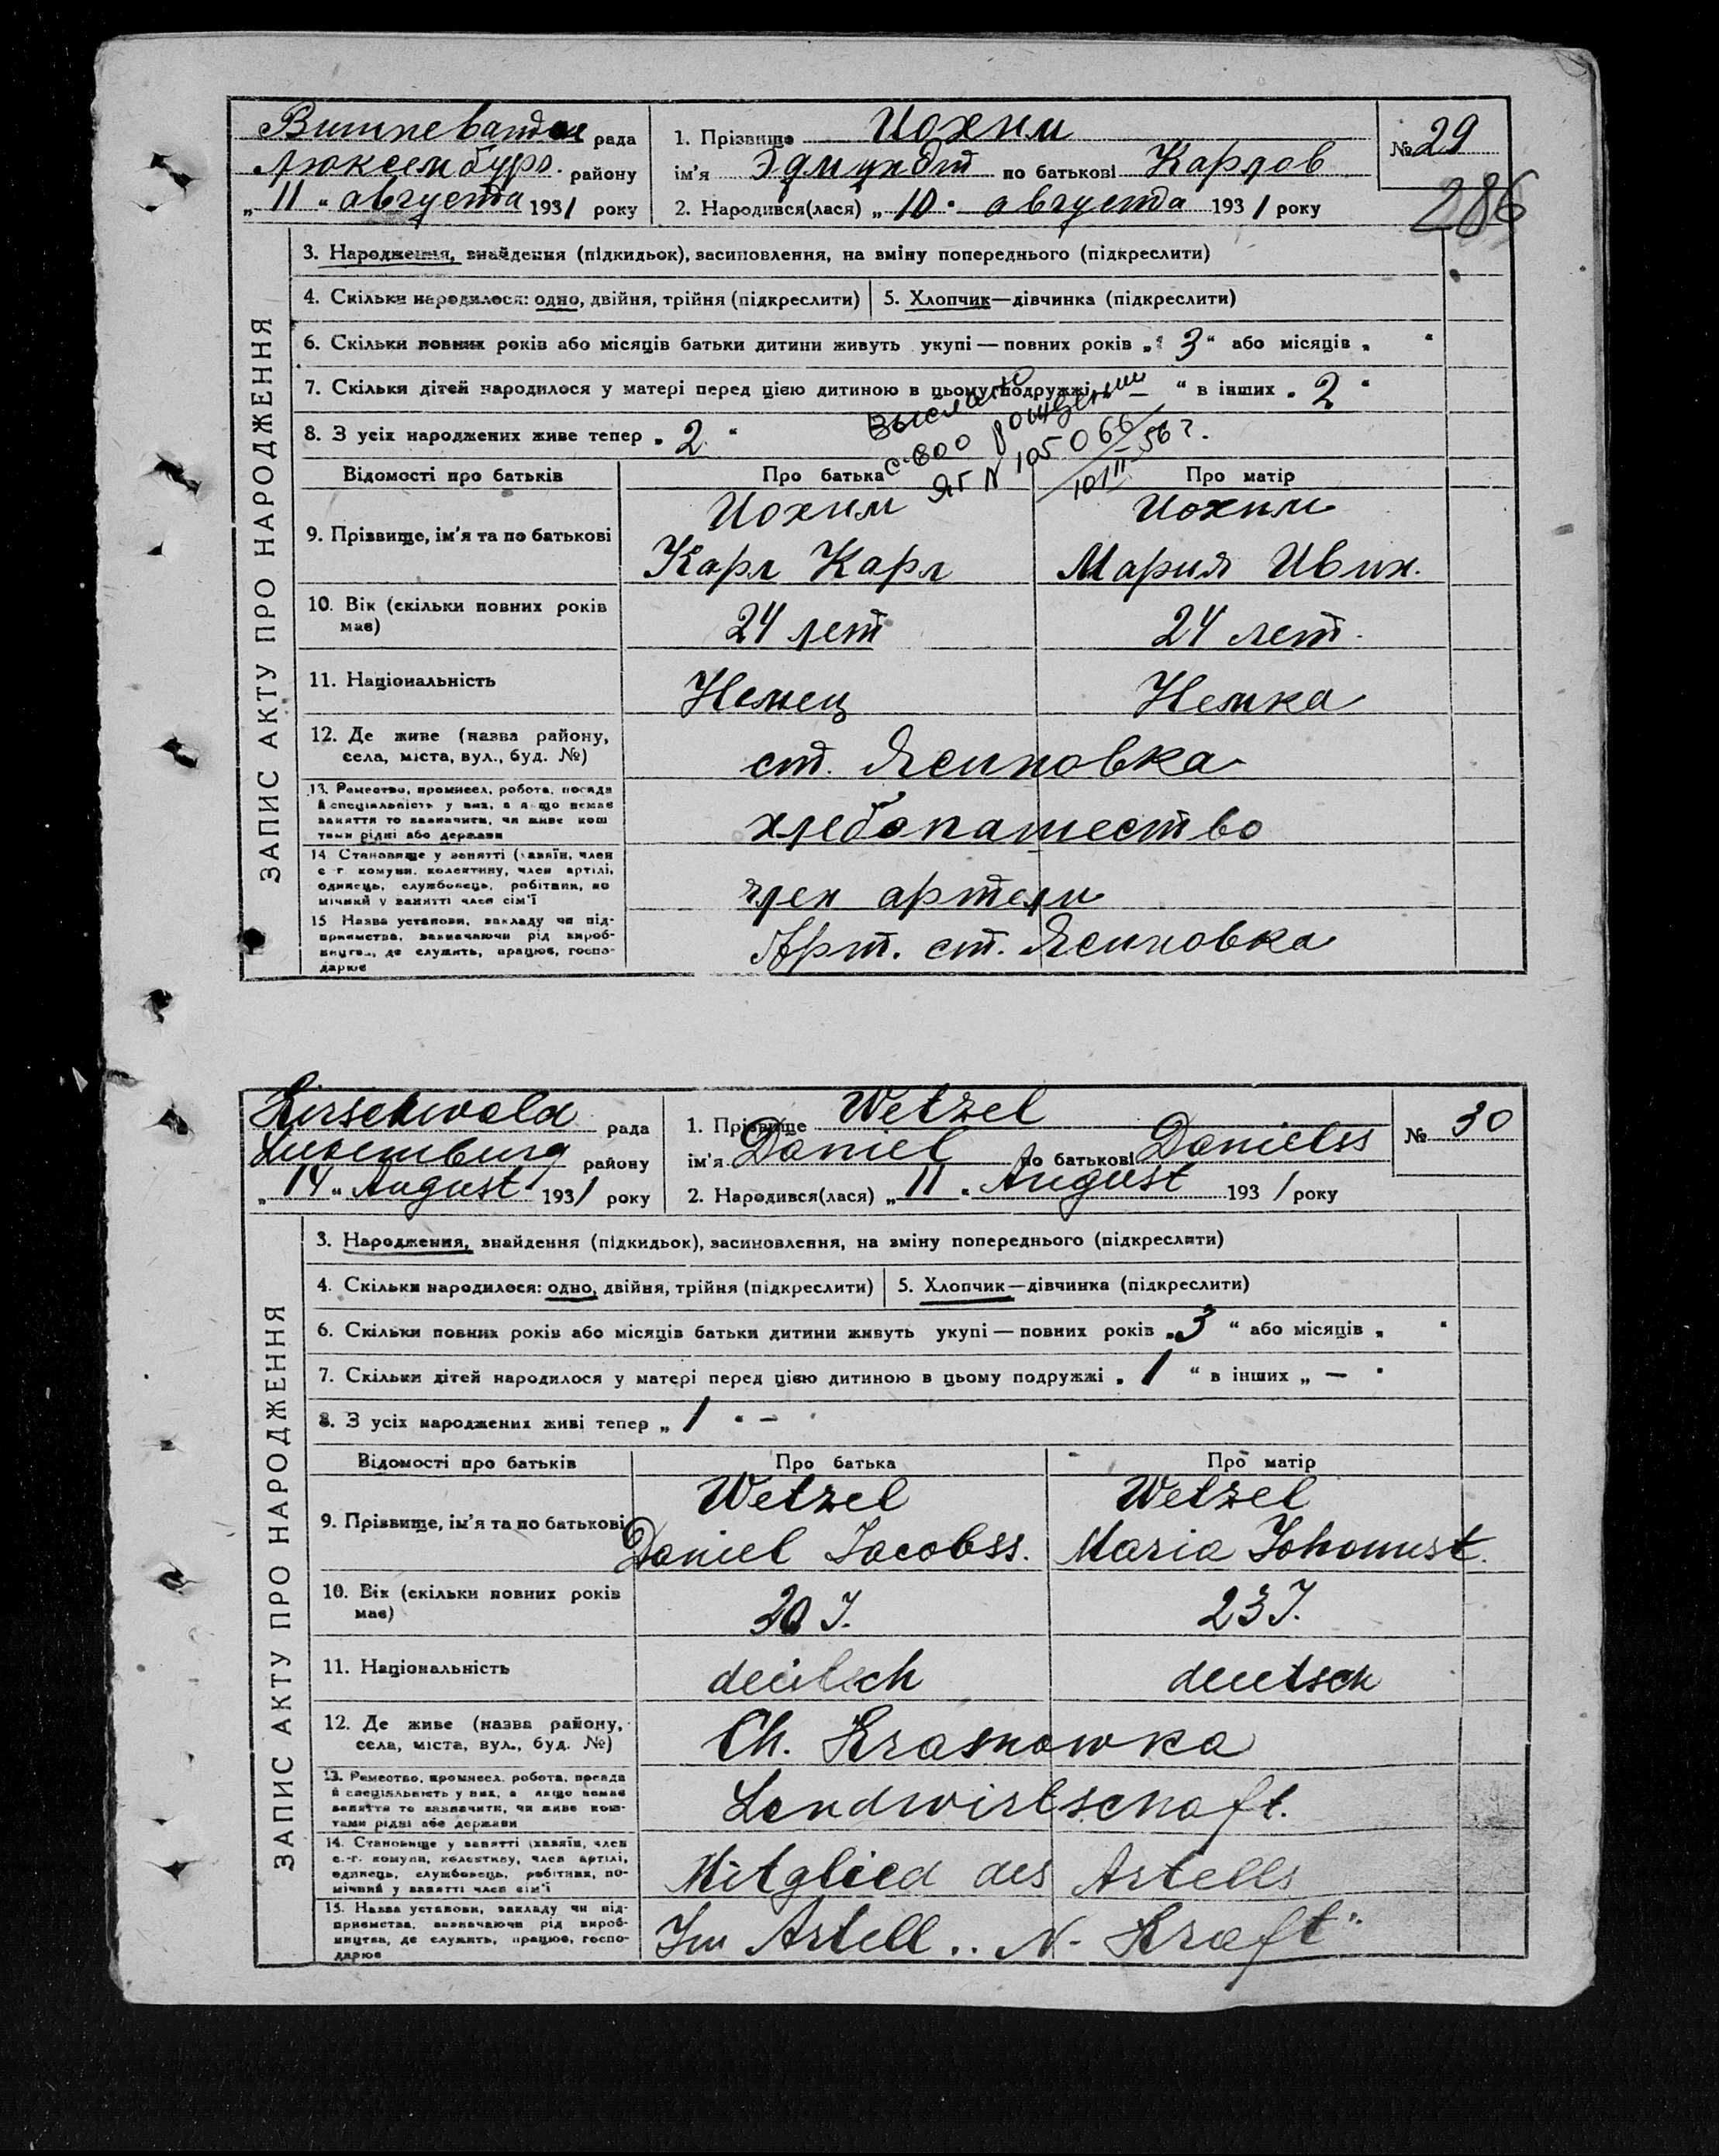 рада
Люксембург. району
„ 11 “ августа 1931 року
1. Прізвище Иохим
ім'я Эдмундт по батькові Карлов
2. Народився(лася) „ 10 “ августа 1931 року
№ 29
286
ЗАПИС АКТУ ПРО НАРОДЖЕННЯ
3. Народження, знайдення (підкидьок), засиновлення, на зміну попереднього (підкреслити)
4. Скільки народилося: одно, двійня, трійня (підкреслити)
5. Хлопчик—дівчинка (підкреслити)
6. Скільки повних років або місяців батьки дитини живуть укупі — повних років „ 3 “ або місяців „ “
7. Скільки дітей народилося у матері перед цією дитиною в цьому подружжі „ — “ в інших „ 2 “
8. З усіх народжених живе тепер „ 2 “
Выслано
с-во о рождении
ЯГ N 105066
10/II 56 г.
Відомості про батьків
Про батька
Про матір
9. Прізвище, ім'я та по батькові
Иохим
Карл Карл
Иохим
Мария Ивин.
10. Вік (скільки повних років має)
24 лет
24 лет.
11. Національність
Немец
Немка
12. Де живе (назва району,
села, міста, вул., буд. №)
ст. Ясиновка
13. Ремество, промисел, робота, посада
й спеціальність у них, а якщо немає
заняття то зазначити, чи живе кош
тами рідні або держави
хлебопашество
14 Становище у занятті (хазяїн, член
с-г. комуни, колективу, член артілі,
одинець, службовець, робітник, по
мічний у занятті член сім'ї
член артели
15 Назва установи, закладу чи під-
приємства, зазначаючи рід вироб-
ництва, де служить, працює, госпо-
дарює
Арт. ст. Ясиновка
Hirschwald рада
Luxemburg району
„ 14 “ August 1931 року
1. Прізвище Wetzel
ім'я Daniel по батькові Danielss
2. Народився(лася) „ 11 “ August 1931 року
№ 30
ЗАПИС АКТУ ПРО НАРОДЖЕННЯ
3. Народження, знайдення (підкидьок), засиновлення, на зміну попереднього (підкреслити)
4. Скільки народилося: одно, двійня, трійня (підкреслити)
5. Хлопчик—дівчинка (підкреслити)
6. Скільки повних років або місяців батьки дитини живуть укупі — повних років „ 3 “ або місяців „ “
7. Скільки дітей народилося у матері перед цією дитиною в цьому подружжі „ 1 “ в інших „ — “
8. З усіх народжених живі тепер „ 1 “ —
Відомості про батьків
Про батька
Про матір
9. Прізвище, ім'я та по батькові
Wetzel
Daniel Jacobss.
Wetzel
Maria Johannest.
10. Вік (скільки повних років має)
30 J.
23 J.
11. Національність
deutsch
deutsch
12. Де живе (назва району,
села, міста, вул., буд. №)
Ch. Krasnowka
13. Ремество, промисел, робота, посада
й спеціальність у них, а якщо немає
заняття то зазначити, чи живе кош-
тами рідні або держави
Landwirtschaft.
14. Становище у занятті (хазяїн, член
с.-г. комуни, колективу, член артілі,
одинець, службовець, робітник, по-
мічний у занятті член сім'ї
Mitglied des Artells
15. Назва установи, закладу чи під-
приємства, зазначаючи рід вироб-
ництва, де служить, працює, госпо-
дарює
Im Artell „N- Kraft“